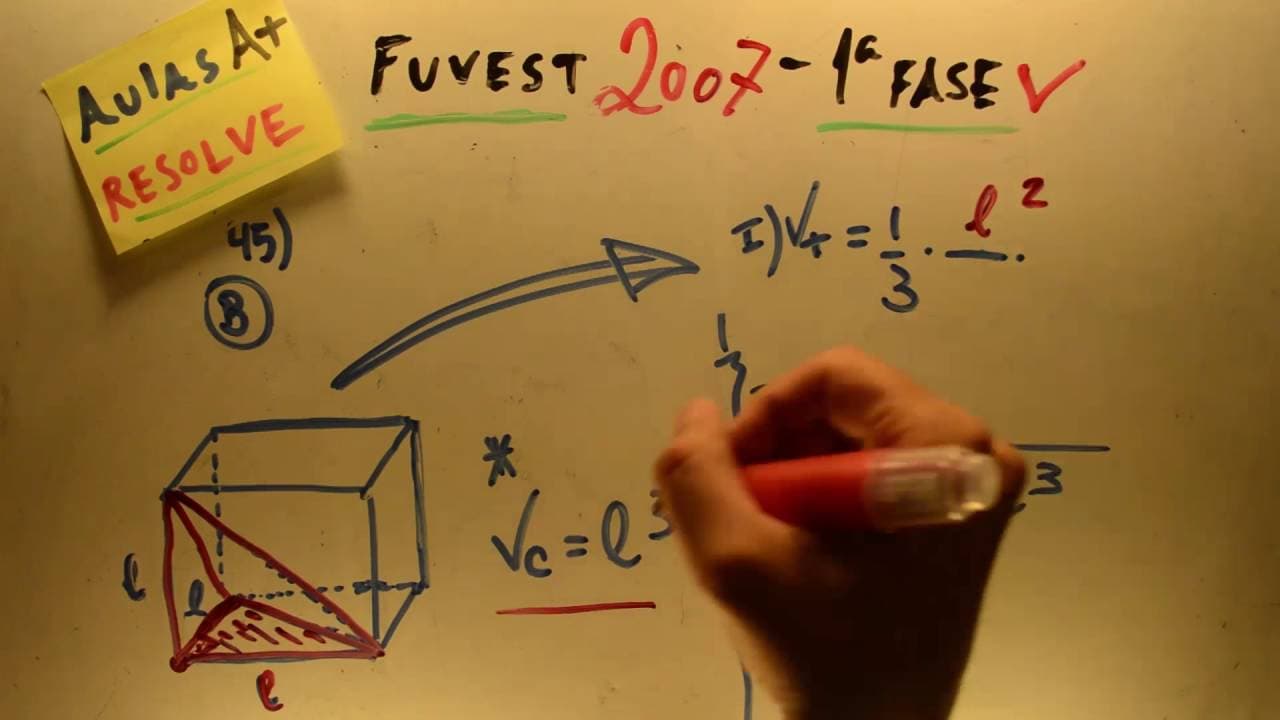 Aulas A+
RESOLVE
FUVEST 2007 - 1ª FASE V
45)
B
I) V_T = 1/3 · l² .
1/3
3
*
V_C = l³
l
l
l